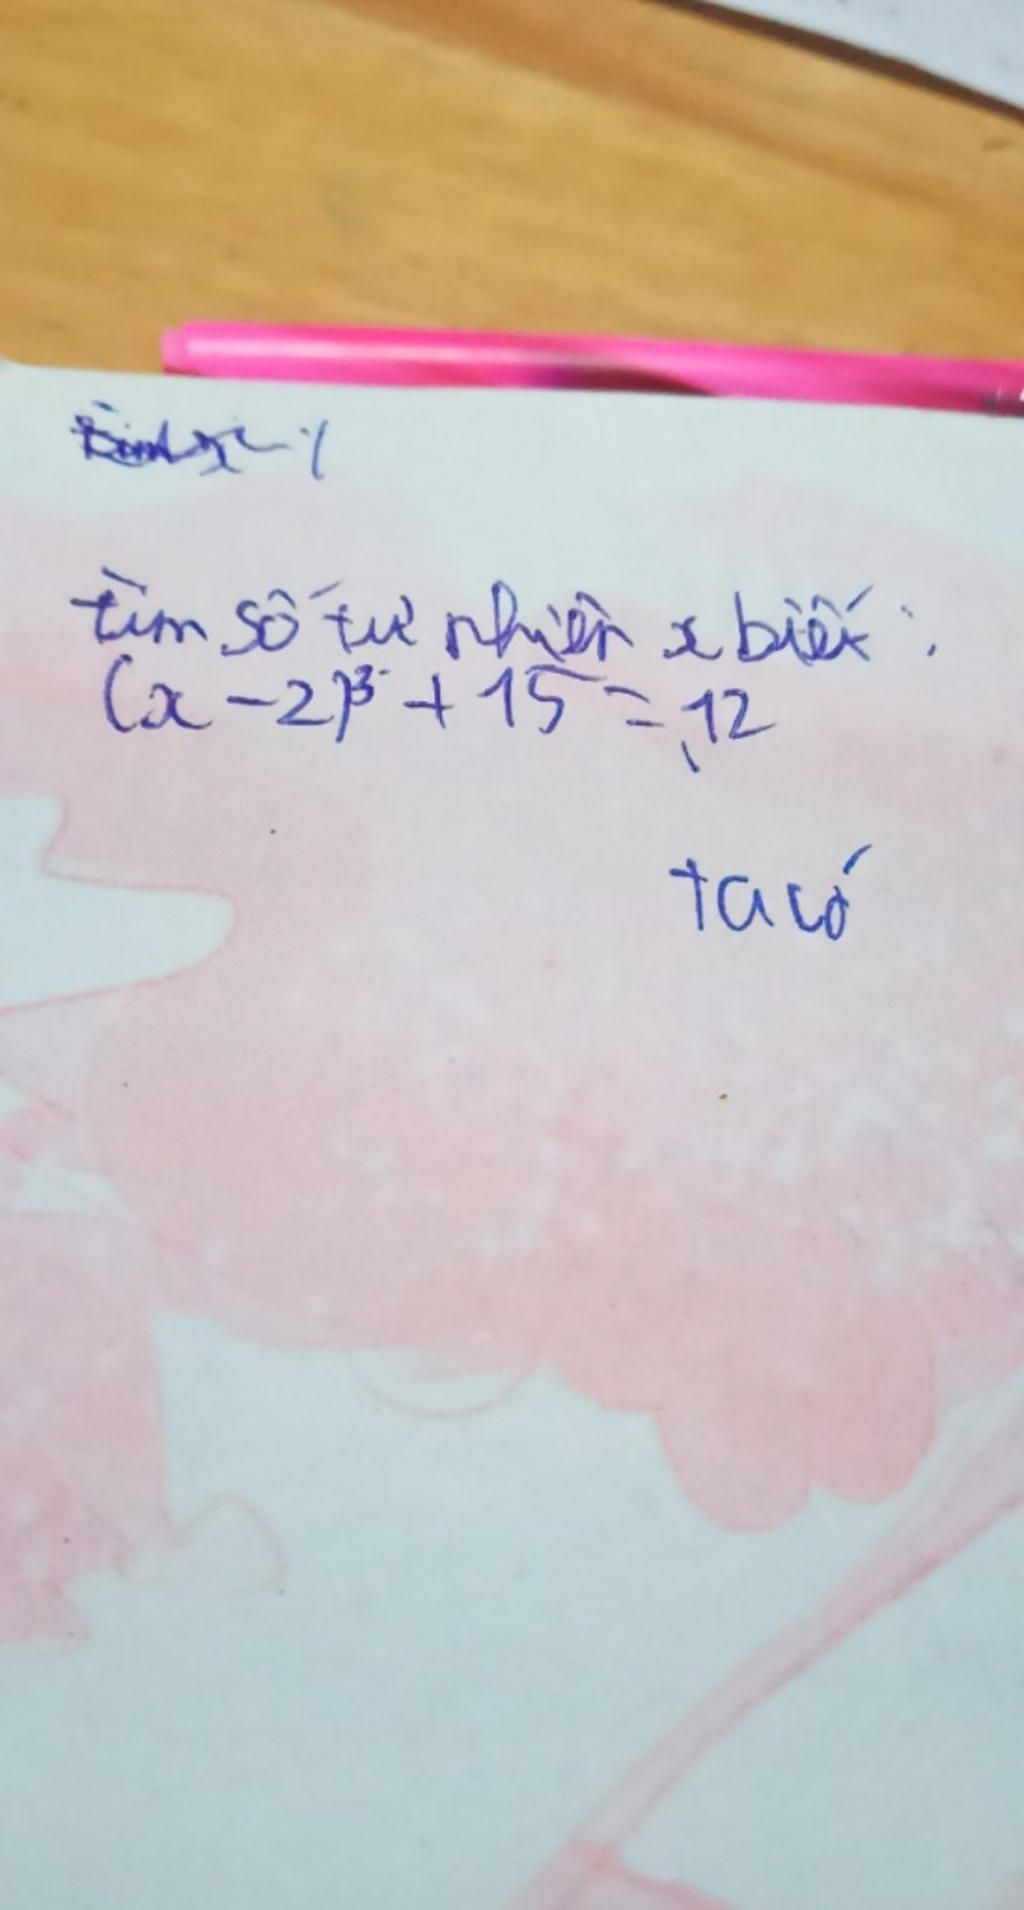 tìm số tự nhiên x biết:
(x - 2)³ + 15 = 12
ta có